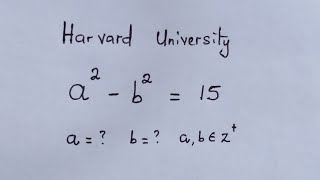 Harvard University
a² - b² = 15
a = ? b = ? a, b ∈ z⁺